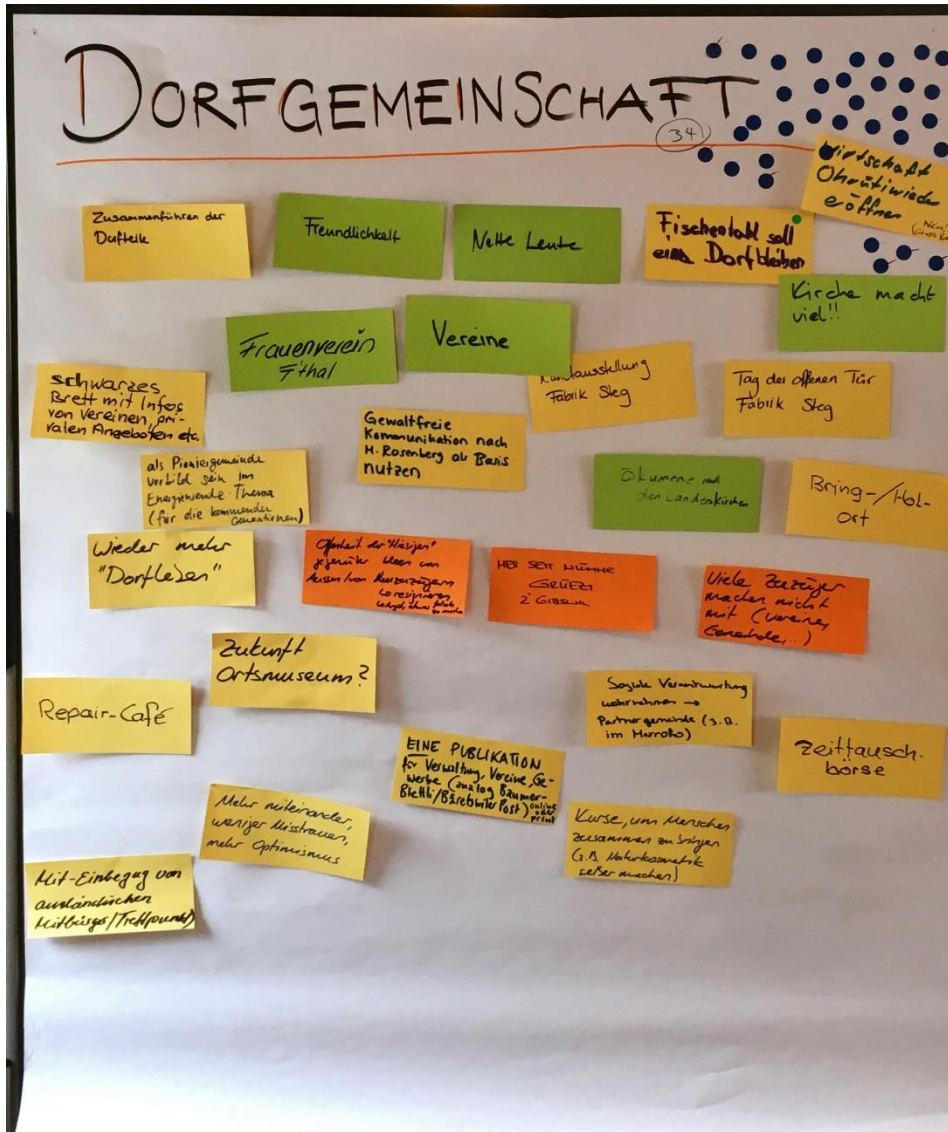 DORFGEMEINSCHAFT
34
Wirtschaft
Ohrüti wieder
eröffnen
Zusammenführen der
Dorfteile
Freundlichkeit
Nette Leute
Fischenthal soll
ein Dorf bleiben
Kirche macht
viel!!
Frauenverein
F'thal
Vereine
Kunstausstellung
Fabrik Steg
Tag der offenen Tür
Fabrik Steg
schwarzes
Brett mit Infos
von Vereinen, pri-
vaten Angeboten etc.
Gewaltfreie
Kommunikation nach
M. Rosenberg als Basis
nutzen
als Pioniergemeinde
Vorbild sein im
Energiewende-Thema
(für die kommenden
Generationen)
Ökumene mit
den Landeskirchen
Bring-/Hol-
Ort
Wieder mehr
"Dorfleben"
Offenheit der "Hiesigen"
gegenüber Ideen von
Aussen/von Neuzuzügern
MER SETT NÜMME
GRÜEZI
Z'GIBSWIL
Viele Zuzüger
machen nicht
mit (Vereine,
Gemeinde,...)
Zukunft
Ortsmuseum?
Repair-Café
Soziale Verantwortung
wahrnehmen →
Partnergemeinde (z.B.
im Marroko)
Zeittausch-
börse
EINE PUBLIKATION
für Verwaltung, Vereine, Ge-
werbe (analog Bäumer-
Blettli/Bäretswiler Post) online
oder
print
Mehr miteinander,
weniger Misstrauen,
mehr Optimismus
Kurse, um Menschen
zusammen zu bringen
(z.B. Naturkosmetik
selber machen)
Mit-Einbezug von
ausländischen
Mitbürger/Treffpunkt)